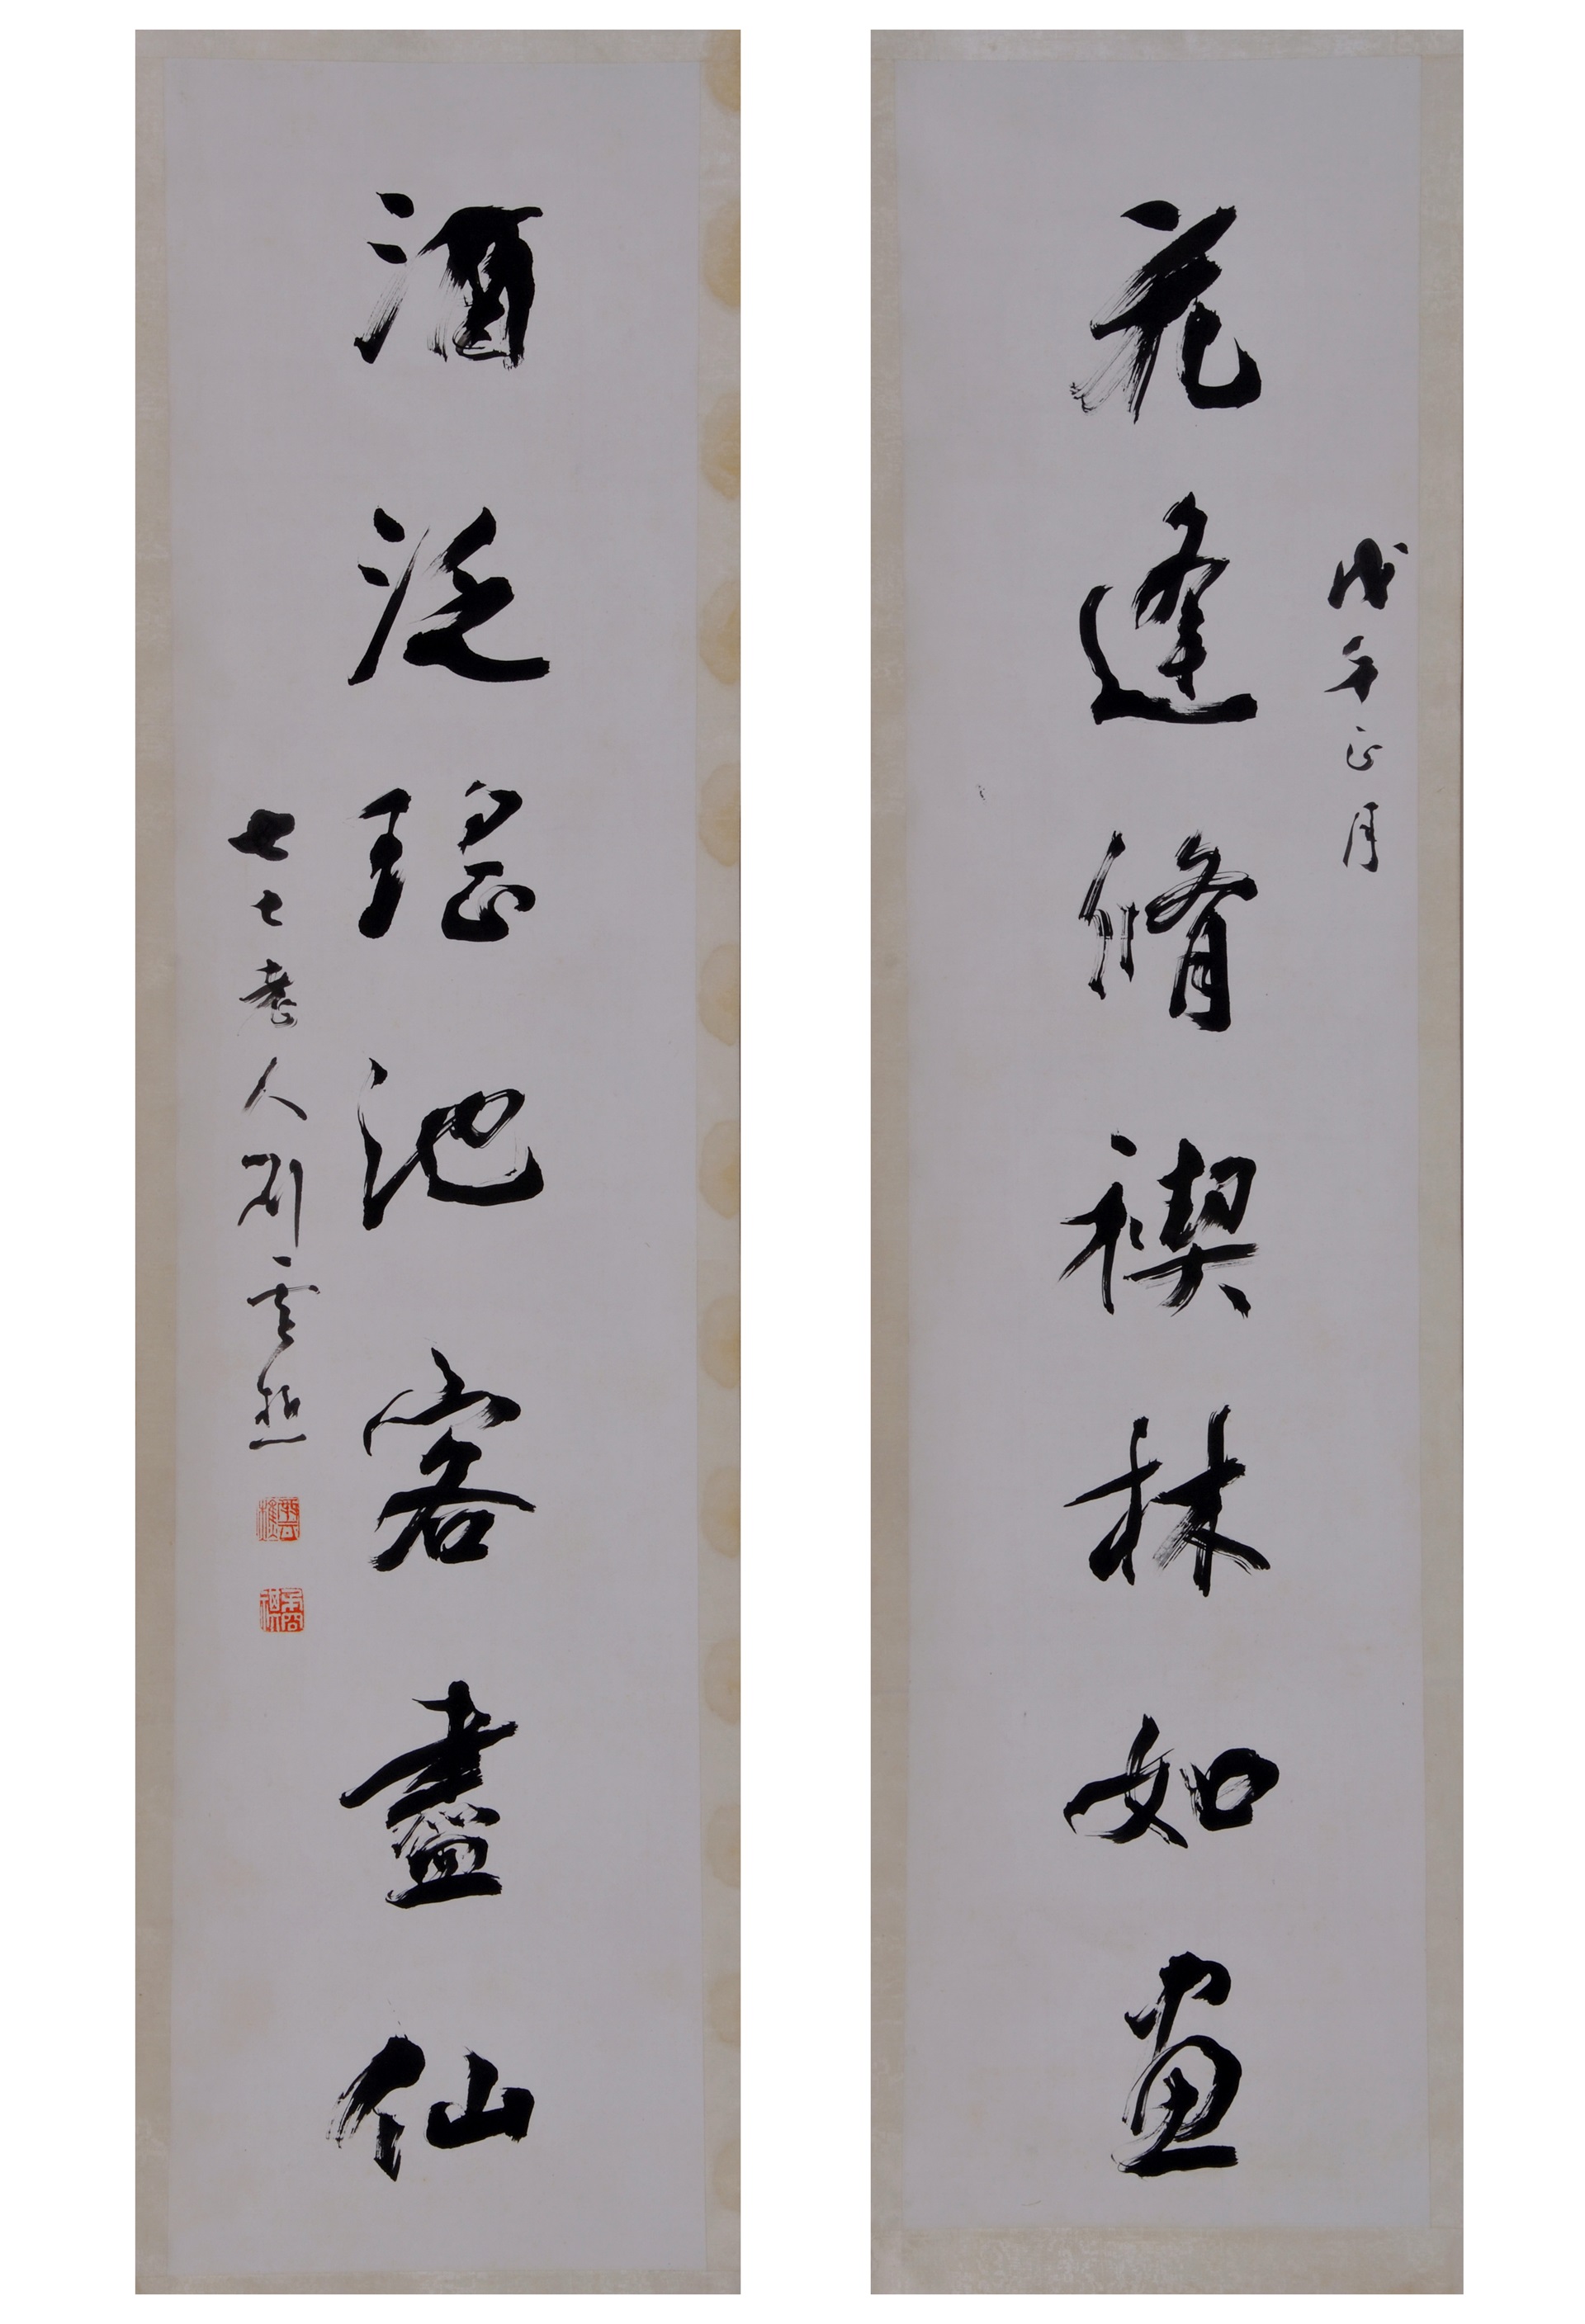 戊午正月
花逢脩禊林如畫
酒泛瑤池客盡仙
七七老人劉雲樵